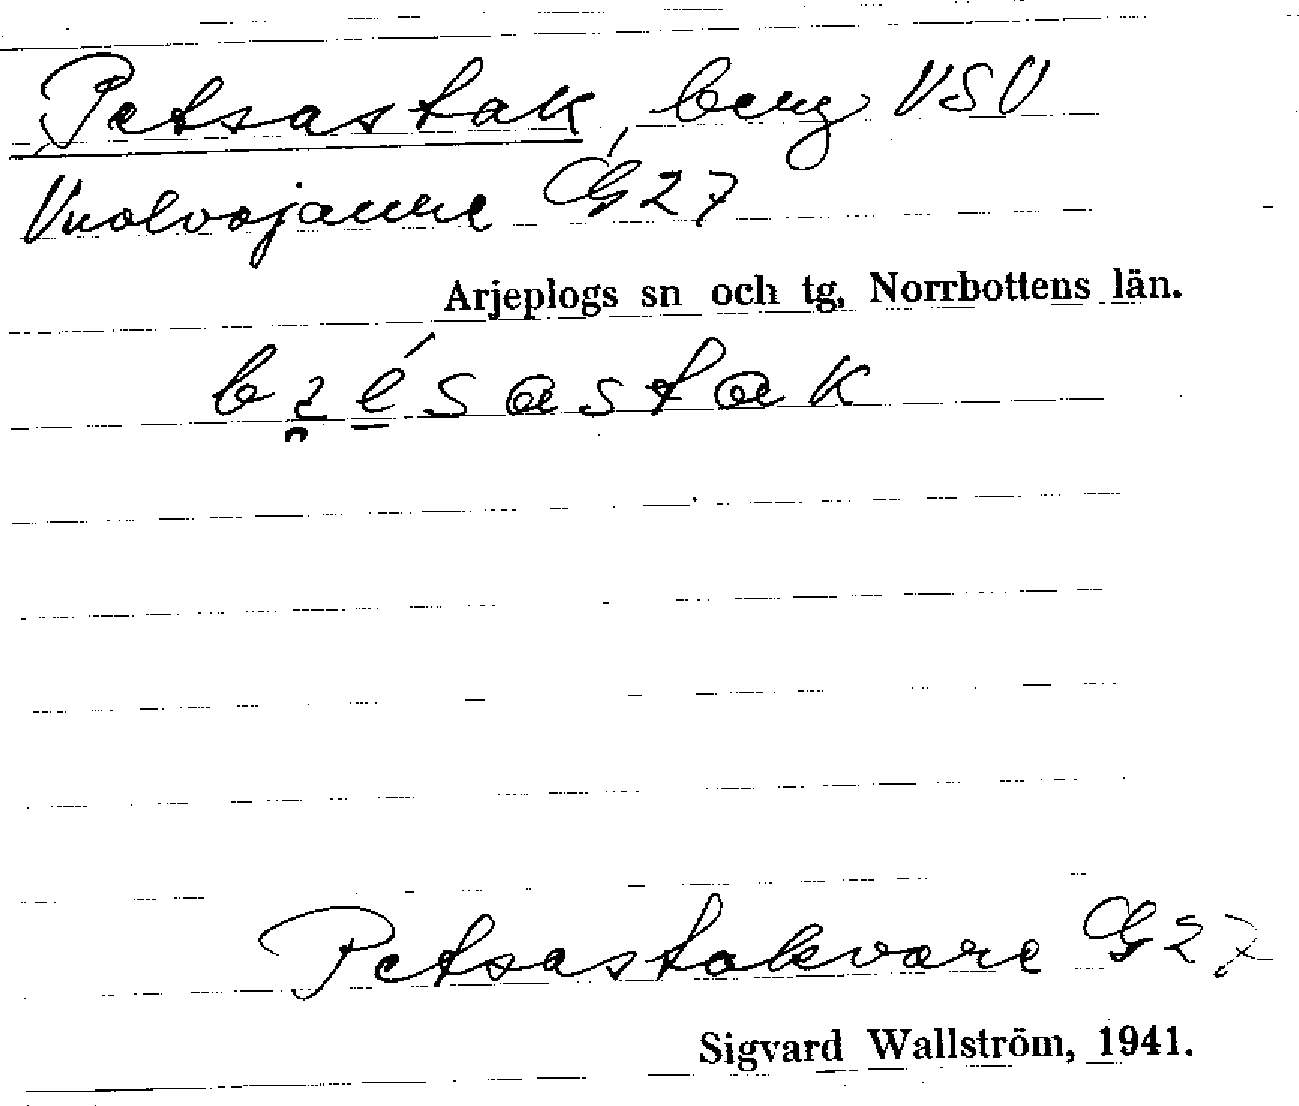 Petsastak, berg VSV
Vuolvojaure G27
Arjeplogs sn och tg, Norrbottens län.
Petsastakvare G27
Sigvard Wallström, 1941.